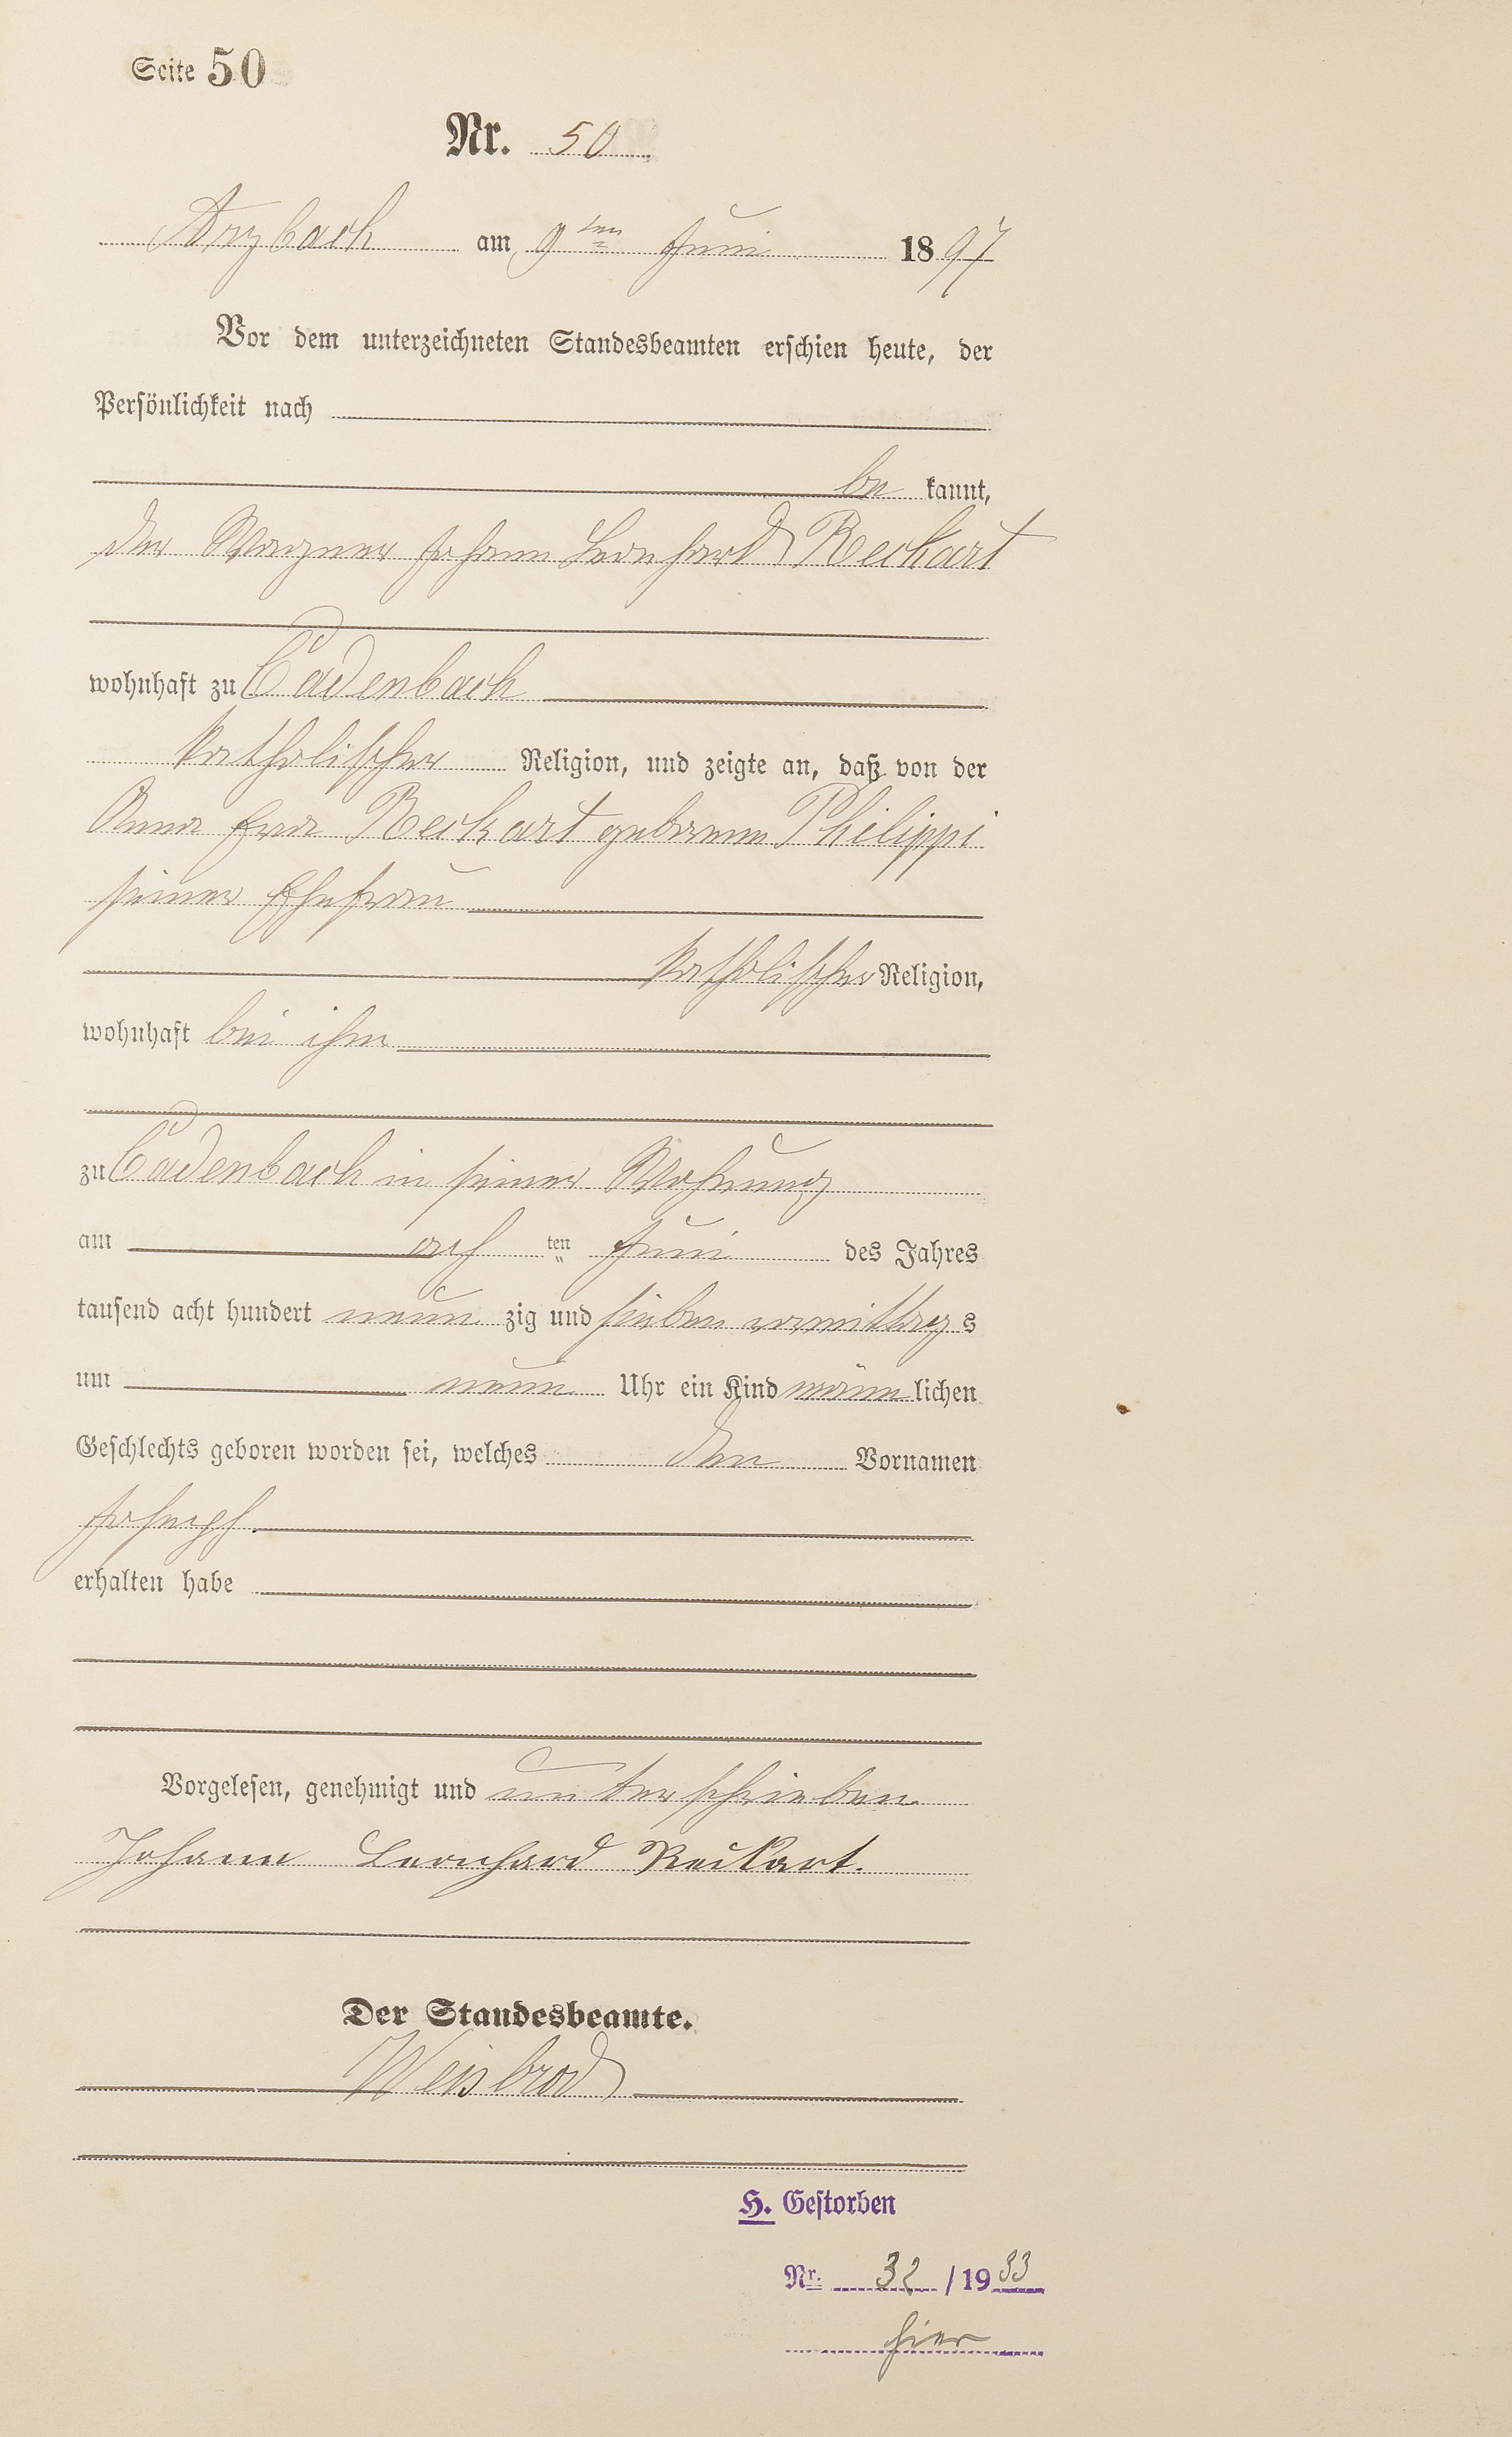 Seite 50
Nr. 50
Arzbach am 9ten Juni 1897
Vor dem unterzeichneten Standesbeamten erschien heute, der
Persönlichkeit nach
be kannt,
der Wagner Johann Leonhard Reckart
wohnhaft zu Cadenbach
katholischer Religion, und zeigte an, daß von der
Anna Eva Reckart geborenen Philippi
seiner Ehefrau
katholischer Religion,
wohnhaft bei ihm
zu Cadenbach in seiner Wohnung
am ach ten Juni des Jahres
tausend acht hundert neun zig und sieben vormittags
um neun Uhr ein Kind männlichen
Geschlechts geboren worden sei, welches den Vornamen
Joseph
erhalten habe
Vorgelesen, genehmigt und unterschrieben
Johann Leonhard Reckart.
Der Standesbeamte.
Weisbrod
H. Gestorben
Nr. 32 / 1933
hier